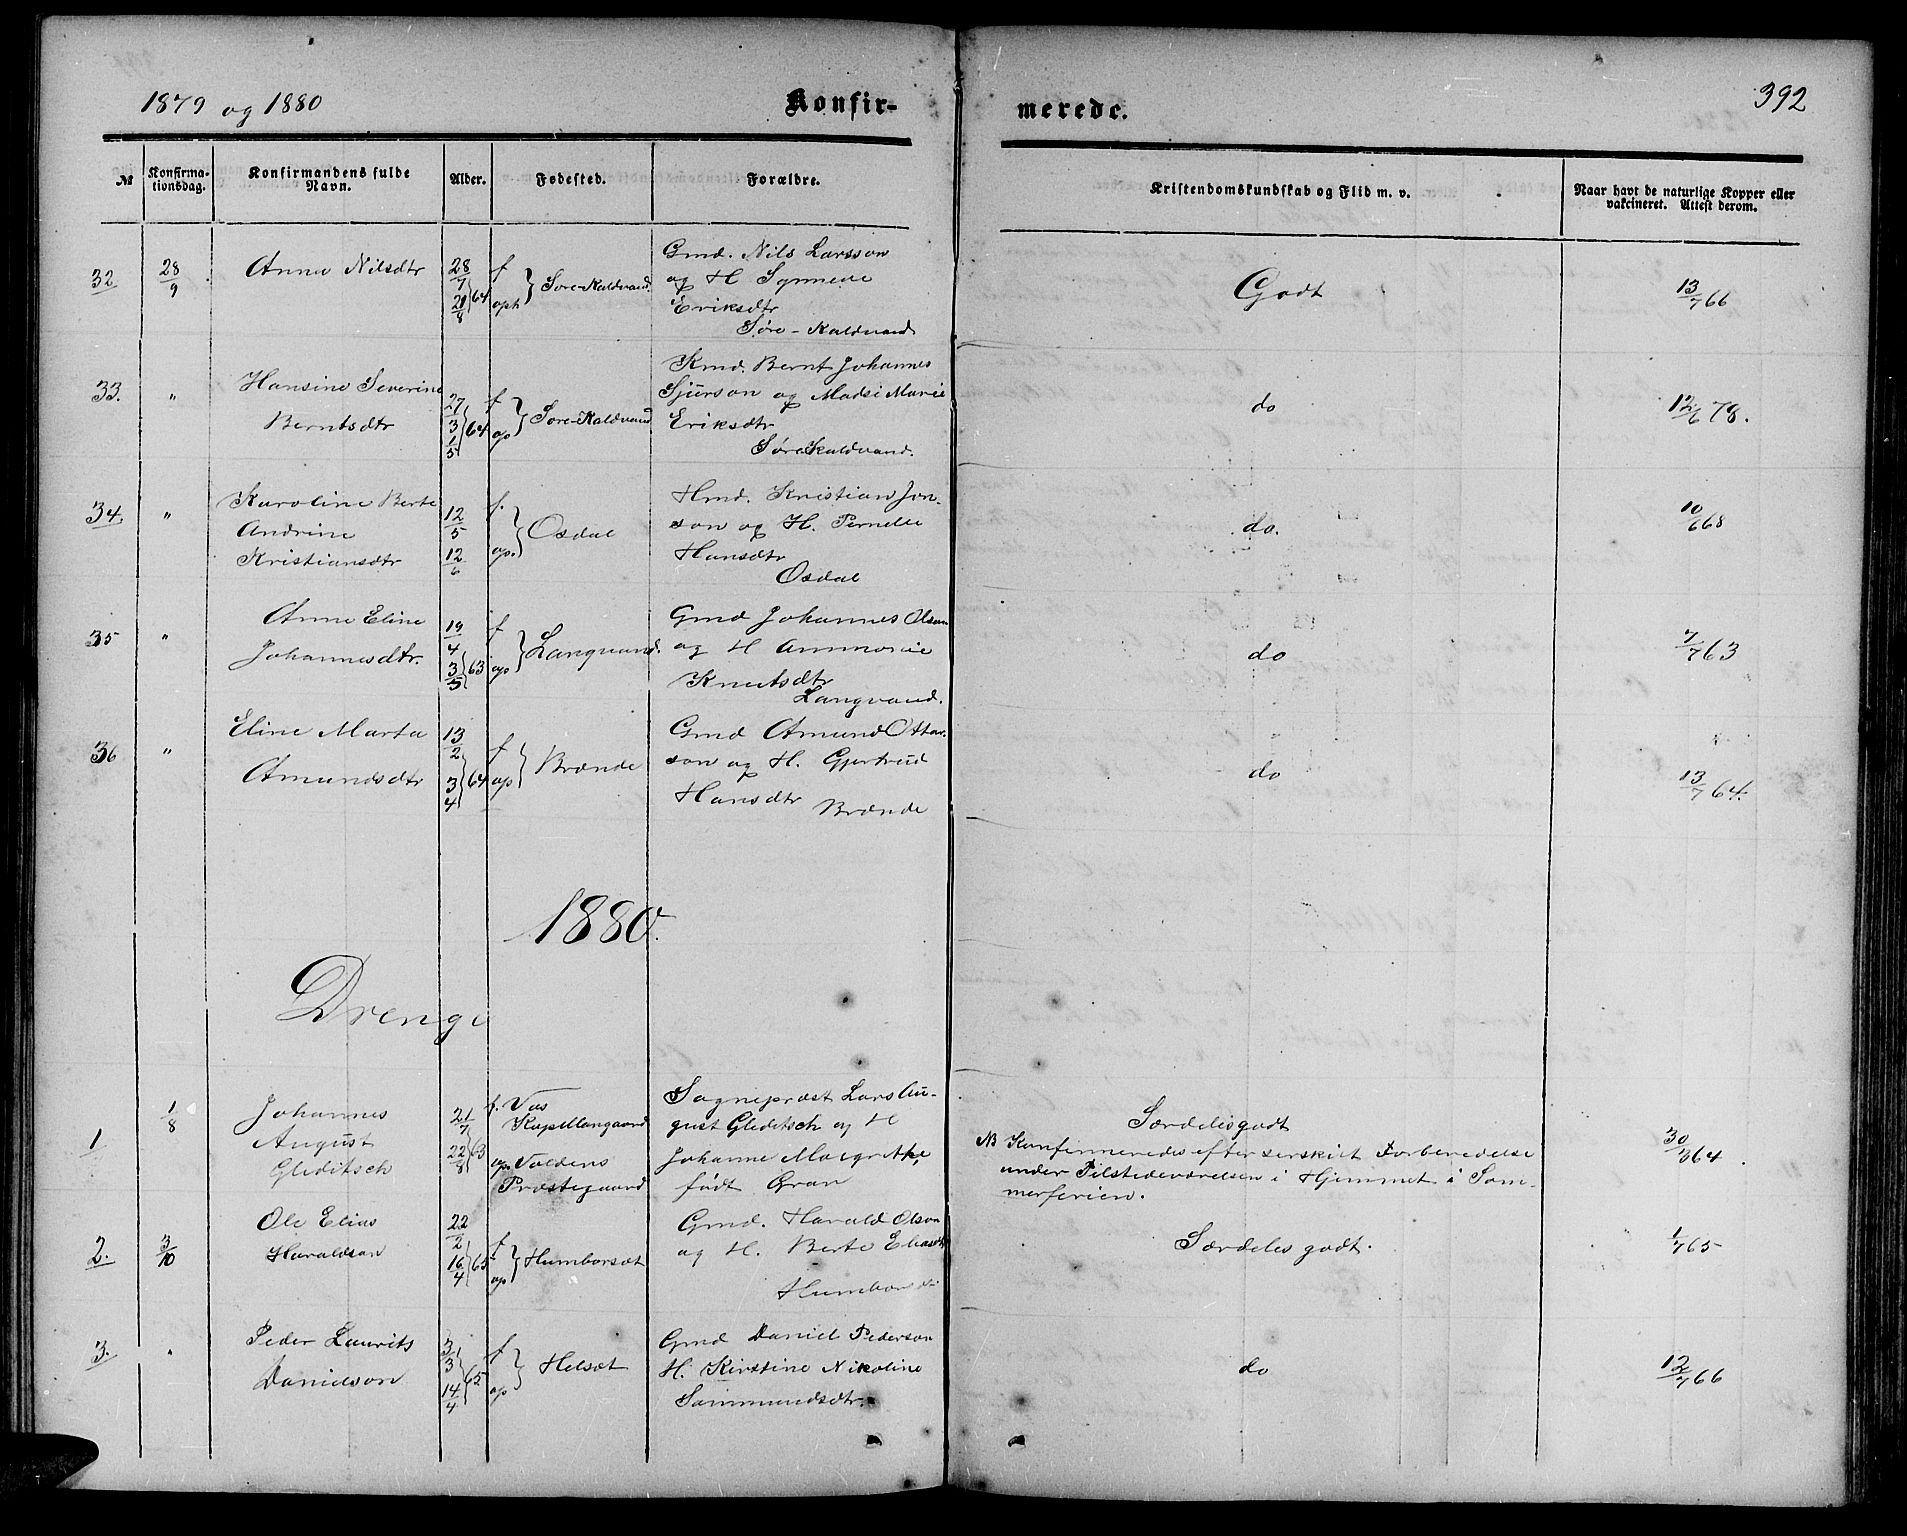 1879 og 1880
Konfir-
merede.
392
№
Konfirma-
tionsdag.
Konfirmandens fulde
Navn.
Alder.
Fødested.
Forældre.
Kristendomskundskab og Flid m. v.
Naar havt de naturlige Kopper eller
vakcineret. Attest derom.
32
28/9
Anna Nilsdtr
28/7 64
f
oph
Søre-Kaldvand
Gmd. Nils Larsson
og H Synneve
Eriksdtr
Søre-Kaldvand
Godt
13/7 66
33.
"
Hansine Severine
Berntsdtr
27/3 1/5 64
f
op
Søre-Kaldvand
Kmd. Bernt Johannes
Sjurson og Madsi Marie
Eriksdtr
Søre Kaldvand.
do
12/6 78.
34.
"
Karoline Berte
Andrine
Kristiansdtr
12/5 12/6
f.
op.
Osdal
Hmd. Kristian Jon-
son og H. Pernelle
Hansdtr
Osdal
do.
10/6 68
35
"
Anne Eline
Johannesdtr.
19/4 3/5 63
f
op
Langvand.
Gmd Johannes Olson
og H Annmarie
Knutsdtr
Langvand.
do
7/7 63
36
"
Eline Marta
Amundsdtr
13/2 3/4 64
f
op
Brænde
Gmd Amund Ottar-
son og H. Gjertrud
Hansdtr
Brænde
do
13/7 64.
1880.
Drenge
1
1/8
Johannes
August
Gleditsch
21/7 22/8 63
f. Vos
Kapellangaard
op. Voldens
Præstegaard
Sognepræst Lars Au-
gust Gleditsch og H
Johanne Margrethe,
født Gran
Særdeles godt
NB Konfirmeredes efter særskilt Forberedelse
under Tilstedeværelsen i Hjemmet i Som-
merferien.
30/3 64.
2.
3/10
Ole Elias
Haraldson
22/2 16/4 65
f
op
Humborsæt
Gmd. Harald Olson
og H. Berte Eliasdtr
Humborsæt
Særdeles godt.
1/7 65
3.
"
Peder Laurits
Danielson
3/3 14/4 65
f
op
Helsæt
Gmd Daniel Pederson
H. Kirstine Nikoline
Sammundsdtr.
do
12/7 66